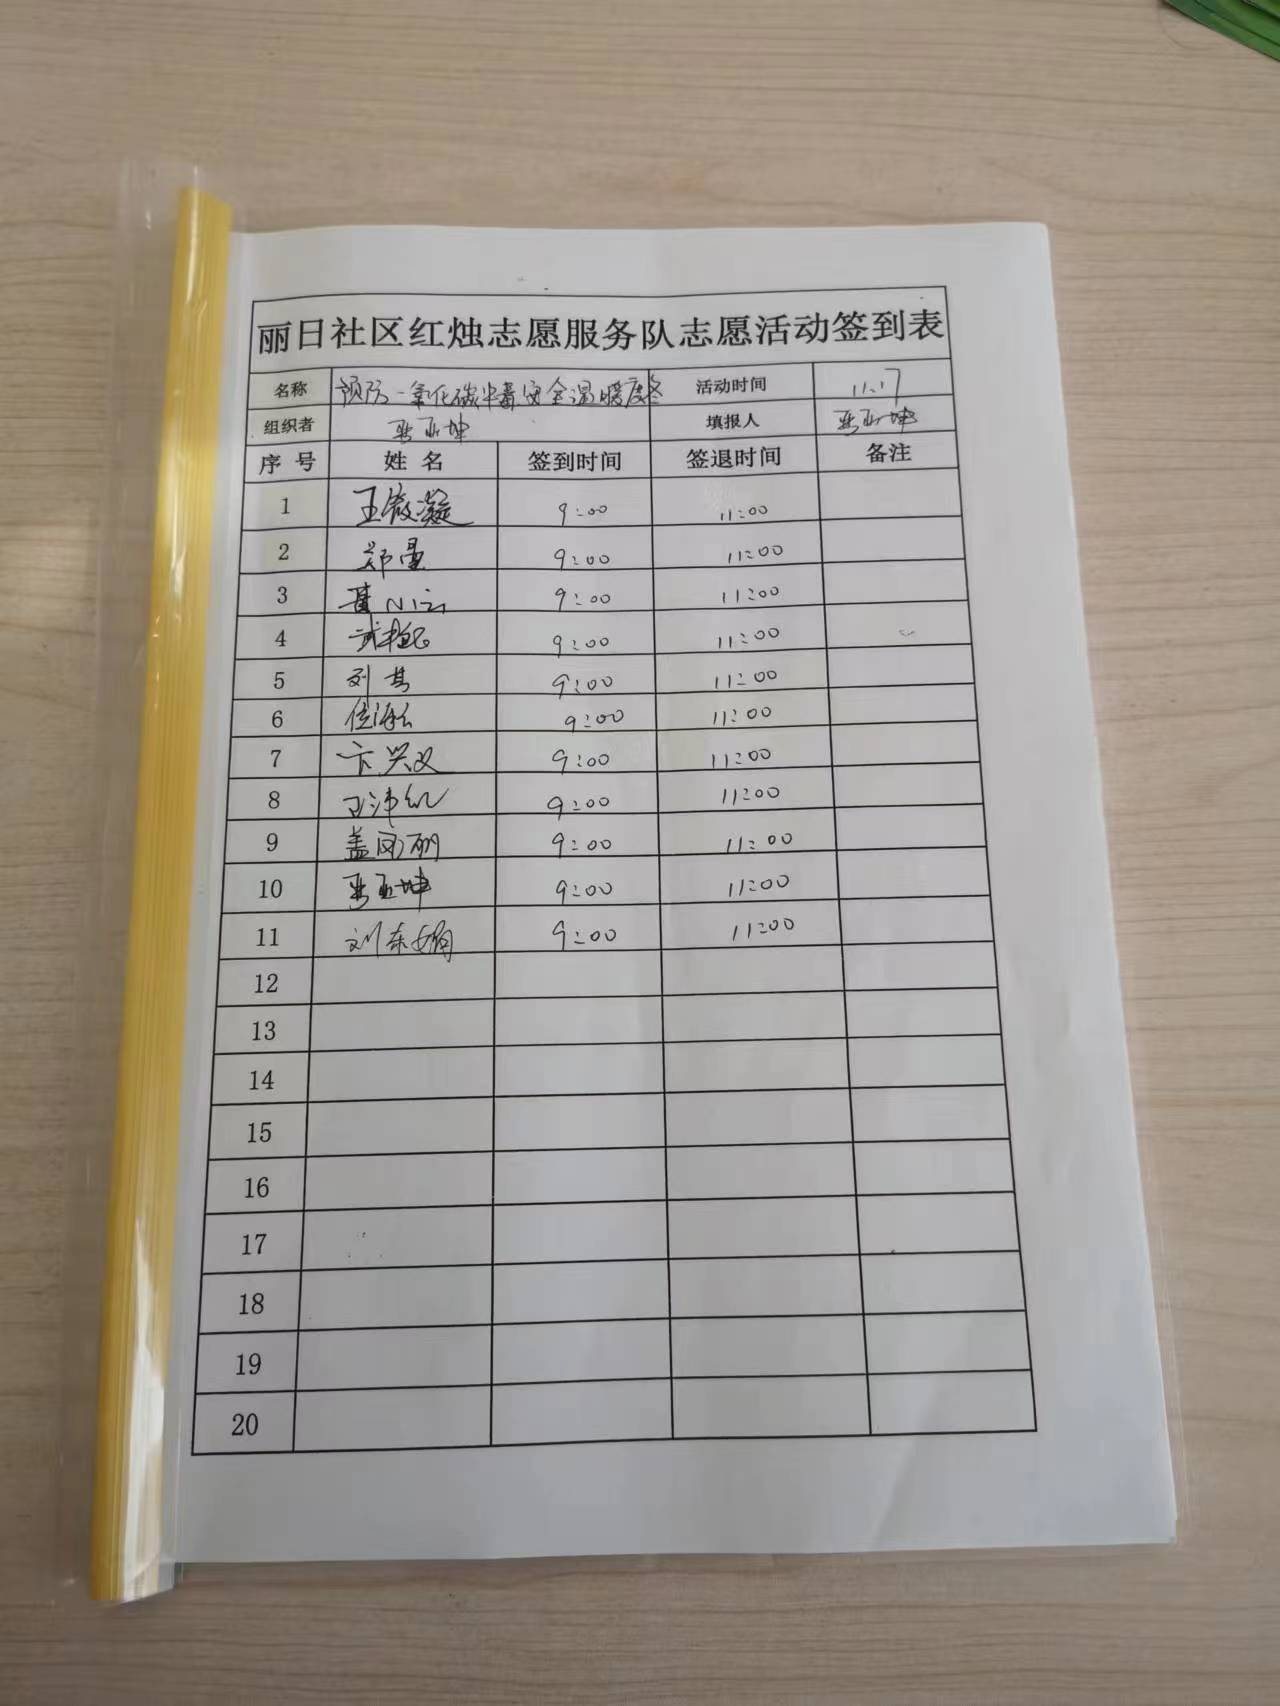 丽日社区红烛志愿服务队志愿活动签到表
名称 预防一氧化碳中毒安全温暖度冬 活动时间 11.17
组织者 亚坤 填报人 亚坤
序号 姓名 签到时间 签退时间 备注
1 王微凝 9:00 11:00
2 郑曼 9:00 11:00
3 9:00 11:00
4 9:00 11:00
5 刘其 9:00 11:00
6 9:00 11:00
7 卞兴义 9:00 11:00
8 王沛红 9:00 11:00
9 盖凤丽 9:00 11:00
10 亚坤 9:00 11:00
11 刘东娟 9:00 11:00
12
13
14
15
16
17
18
19
20